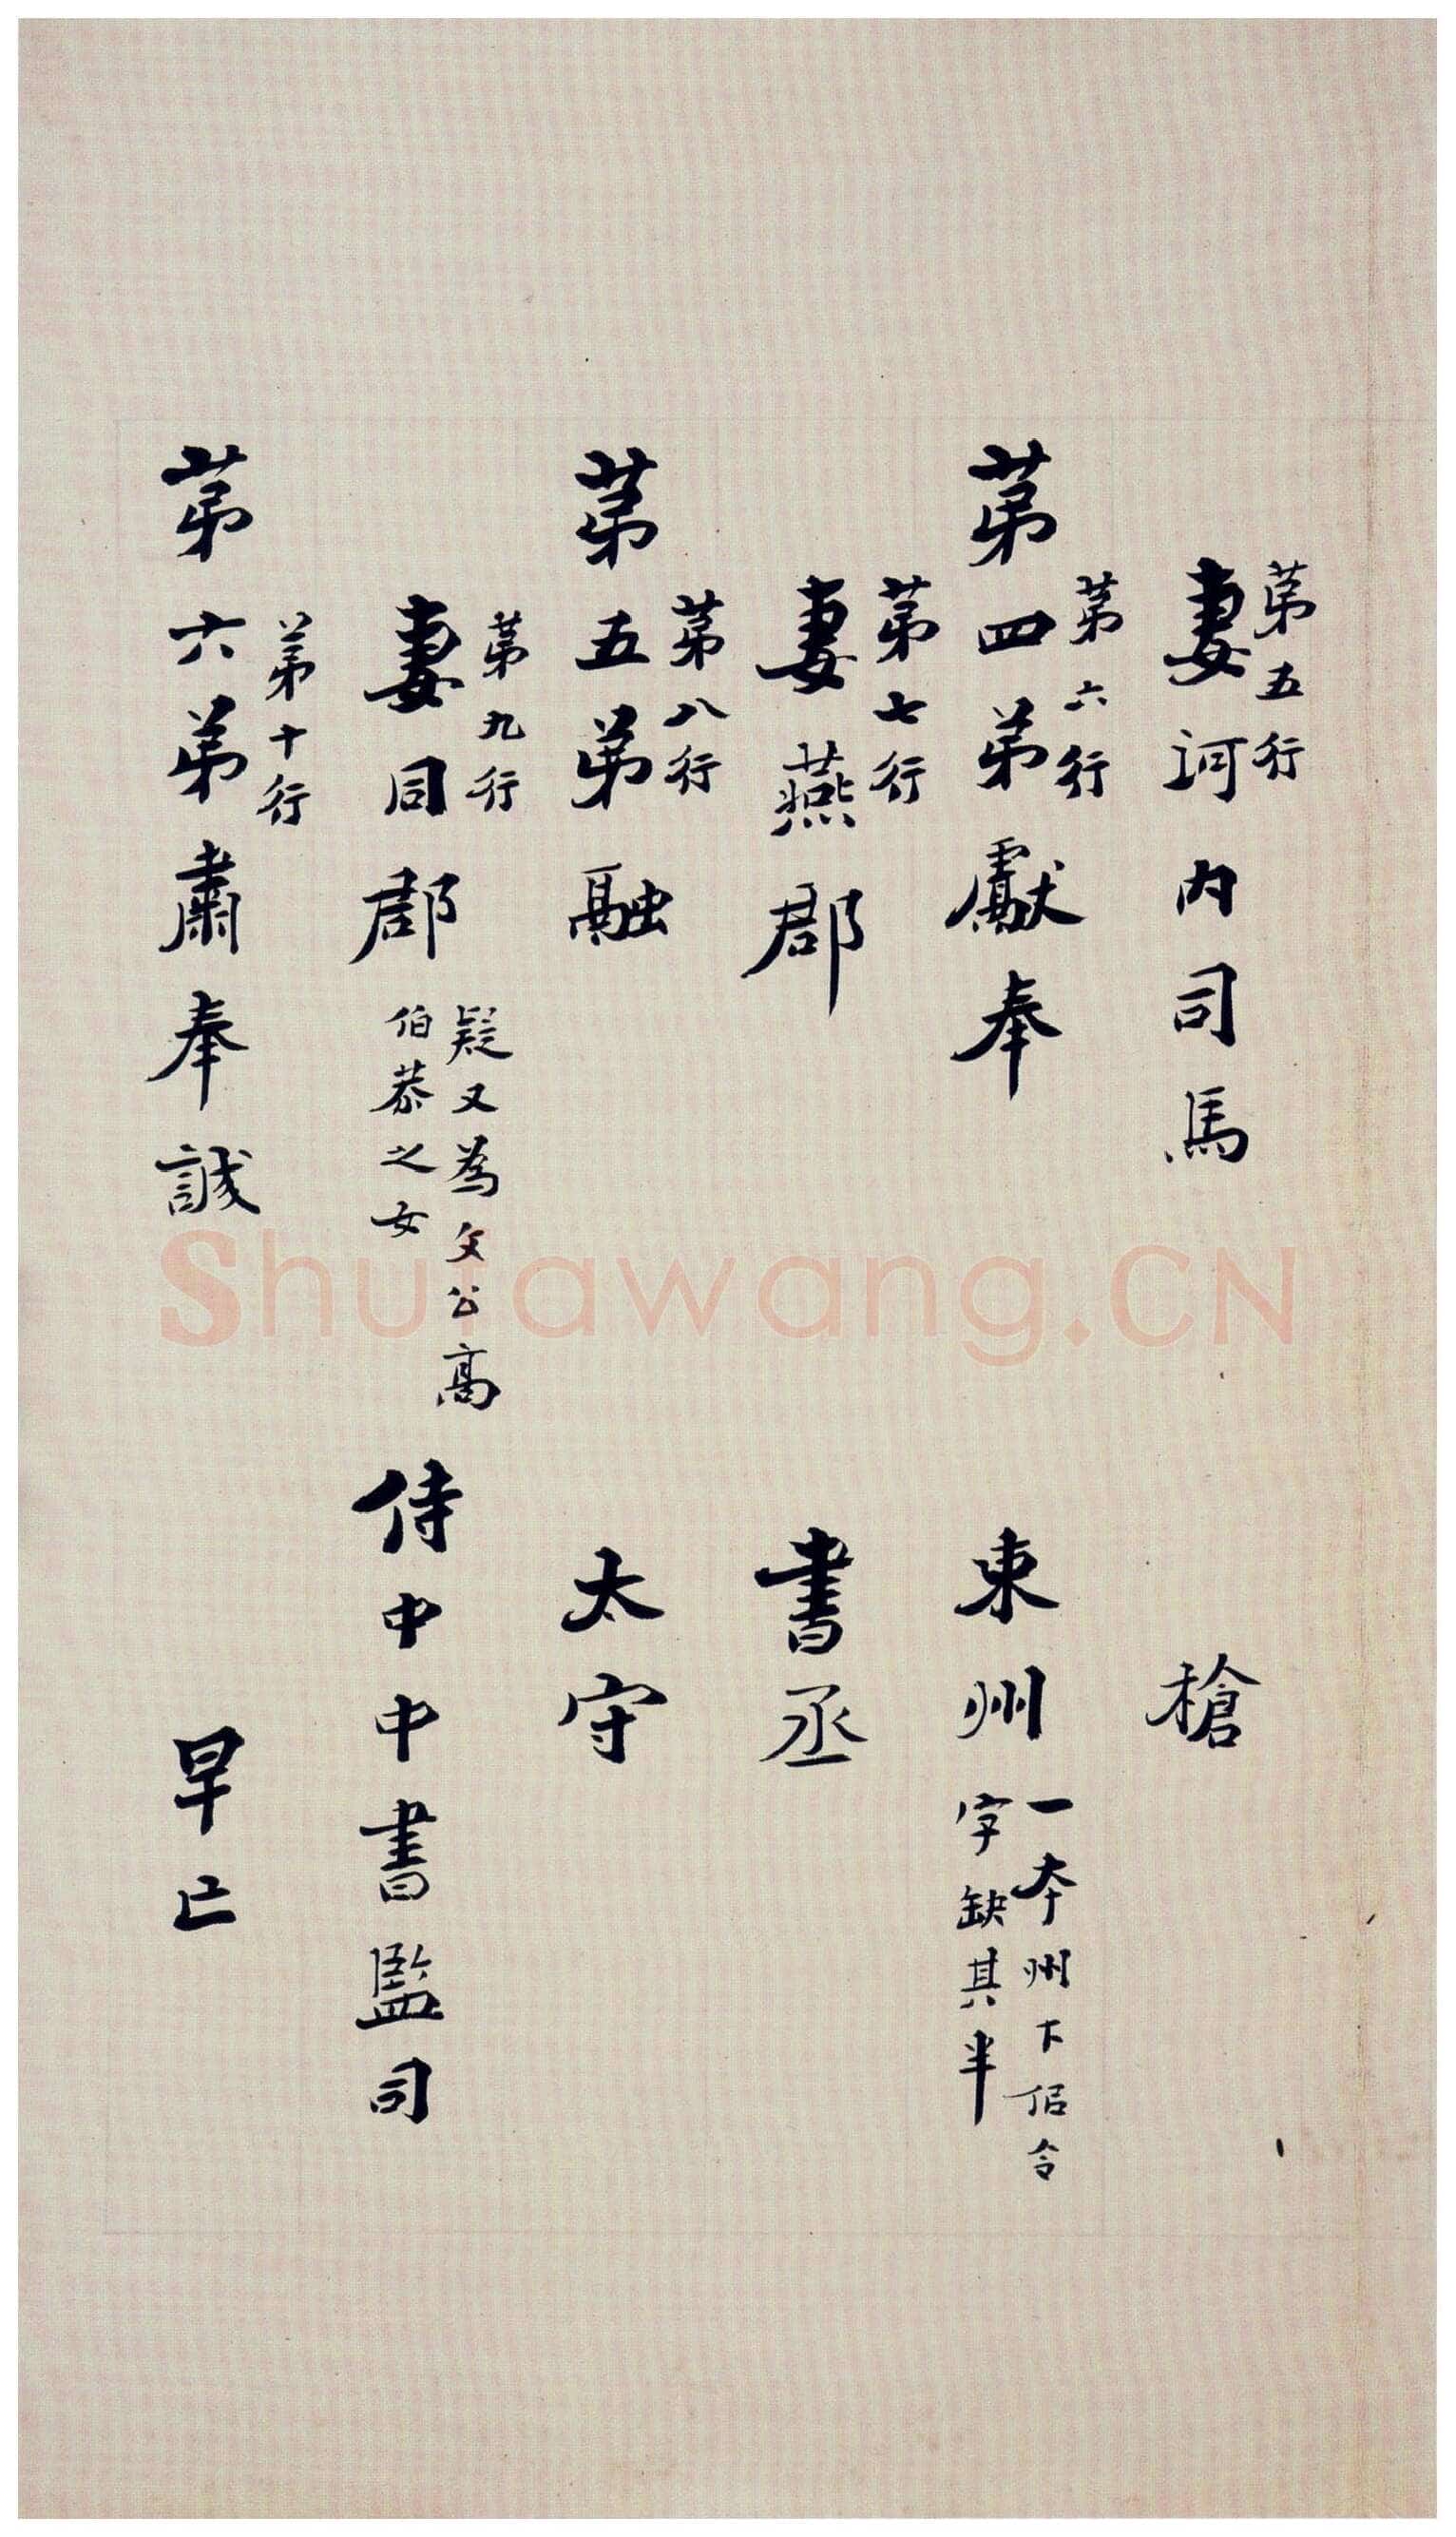 第五行
妻河内司馬
槍
第六行
第四弟獻奉
東州
一本州下佀令
字缺其半
第七行
妻燕郡
書丞
第八行
第五弟融
太守
第九行
妻同郡
疑又為文公高
伯恭之女
侍中中書監司
第十行
第六弟肅奉誠
早亡
Shufawang.CN